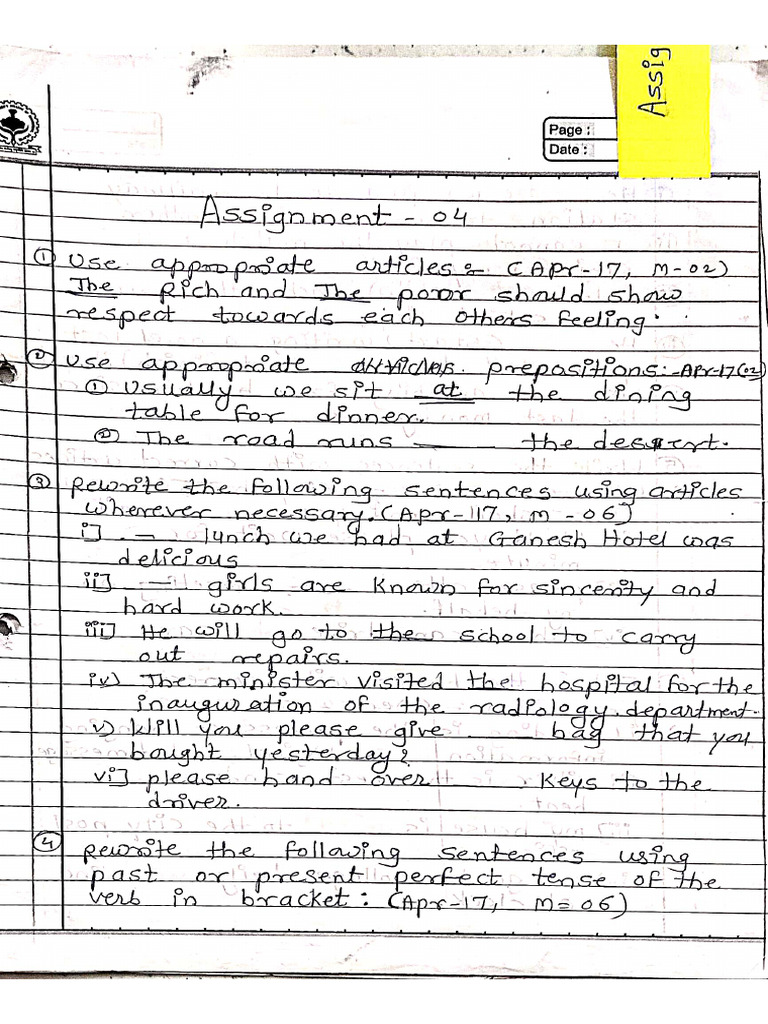 Assig
Page :
Date :
Assignment - 04
① Use appropriate articles :- (Apr-17, M-02)
The Rich and The poor should show
respect towards each others feeling.
② Use appropriate prepositions:-Apr-17(02)
① Usually we sit at the dining
table for dinner.
② The road runs ____ the desert.
③ Rewrite the following sentences using articles
wherever necessary. (Apr-17, M-06)
i] — lunch we had at Ganesh Hotel was
delicious
ii] — girls are known for sincerity and
hard work.
iii] He will go to the school to carry
out repairs.
iv) The minister visited the hospital for the
inauguration of the radiology department.
v) Will you please give ____ bag that you
bought yesterday?
vi] please hand over ____ keys to the
driver.
④ Rewrite the following sentences using
past or present perfect tense of the
verb in bracket : (Apr-17, M=06)